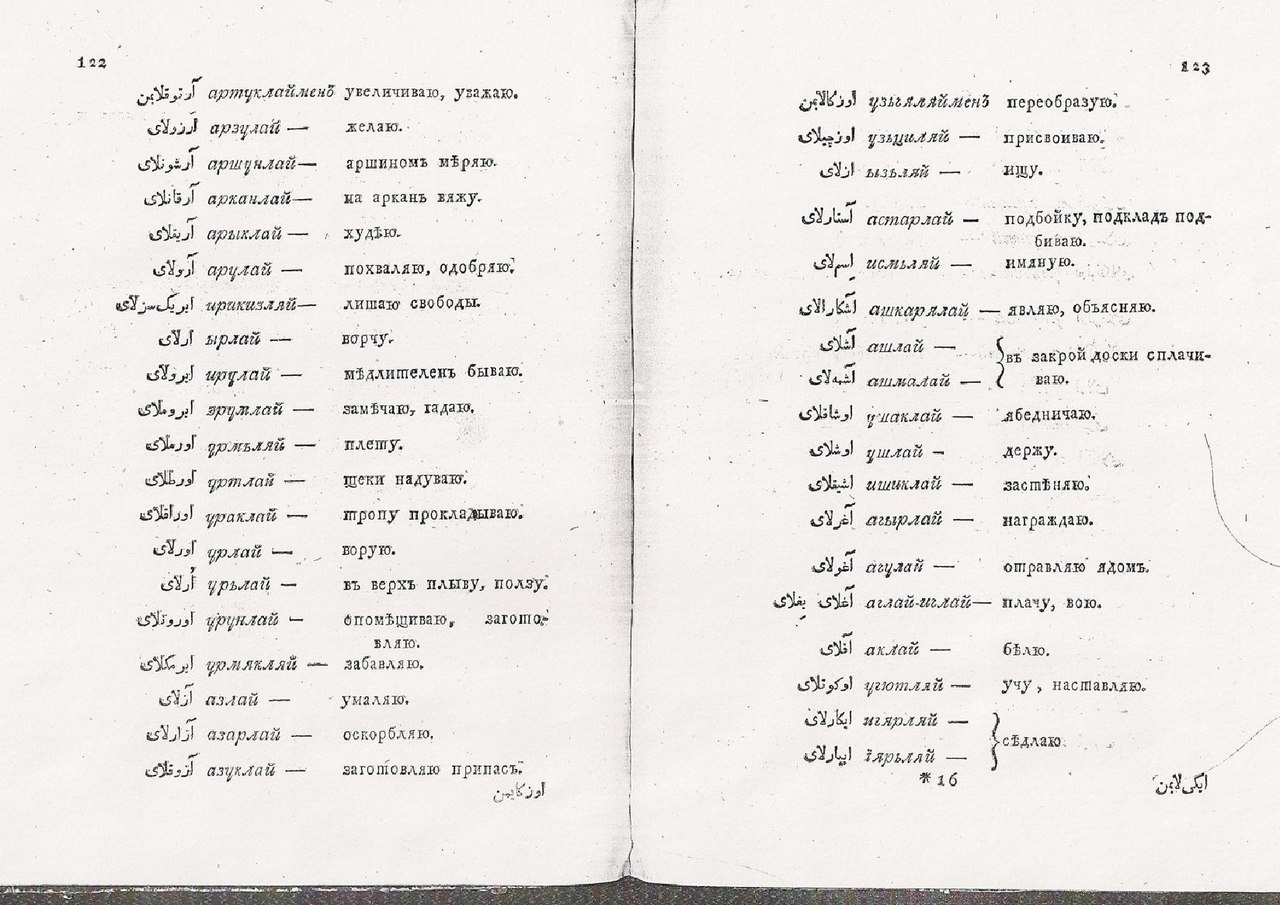 122
آرتوقلايمن артуклайменъ увеличиваю, уважаю.
آرزولاى арзулай — желаю.
آرشونلاى аршунлай — аршиномъ мѣряю.
آرقانلاى арканлай — на арканъ вяжу.
آريقلاى арыклай — худѣю.
آرولاى арулай — похваляю, одобряю.
ايريك سزلاى ирикизляй — лишаю свободы.
ارلاى ырлай — ворчу.
ايرولاى ирулай — мѣдлителенъ бываю.
ايروملاى эрумлай — замѣчаю, гадаю.
اورملاى урмьляй — плету.
اورطلاى уртлай — щеки надуваю.
اوراقلاى ураклай — тропу прокладываю.
اورلاى урлай — ворую.
اُرلاى урьлай — въ верхъ плыву, ползу.
اورونلاى урунлай — опомѣщиваю, загото-
вляю.
ايرمكلاى урмякляй — забавляю.
آزلاى азлай — умаляю.
آزارلاى азарлай — оскорбляю.
آزوقلاى азуклай — заготовляю припасъ.
اوزكايمن
123
اوزكالايمن узьгяляйменъ переобразую.
اوزچيلاى узьциляй — присвоиваю.
ازلاى ызьляй — ищу.
آستارلاى астарлай — подбойку, подкладъ под-
биваю.
اسملاى исмьляй — имяную.
آشكارالاى ашкарялай — являю, объясняю.
آشلاى ашлай — въ закрой доски сплачи-
آشمهلاى ашмалай — ваю.
اوشاقلاى ушаклай — ябедничаю.
اوشلاى ушлай — держу.
اشيقلاى ишиклай — застѣняю.
آغرلاى агырлай — награждаю.
آغولاى агулай — отравляю ядомъ.
آغلاى يغلاى аглай-иглай — плачу, вою.
آقلاى аклай — бѣлю.
اوكوتلاى угютляй — учу, наставляю.
ايكارلاى игярляй —
сѣдлаю
اييارلاى іярьляй —
*16
ايكى لايمن